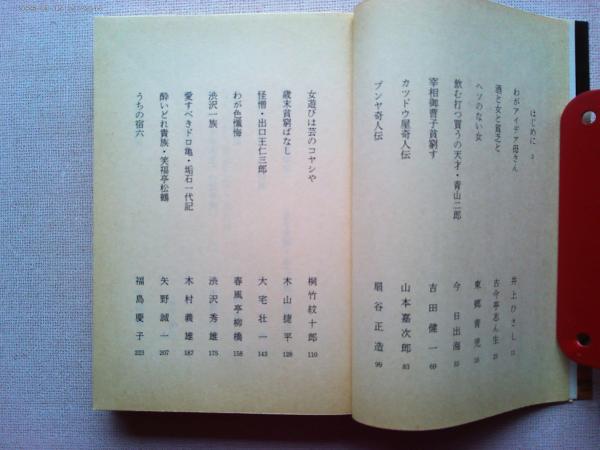 はじめに 3
わがアイデア母さん 井上ひさし 11
酒と女と貧乏と 古今亭志ん生 21
ヘソのない女 東郷青児
飲む打つ買うの天才・青山二郎 今日出海 55
宰相御曹子貧窮す 吉田健一 69
カツドウ屋奇人伝 山本嘉次郎 83
ブンヤ奇人伝 扇谷正造 99
女遊びは芸のコヤシや 桐竹紋十郎 110
歳末貧窮ばなし 木山捷平 128
怪僧・出口王仁三郎 大宅壮一 143
わが色懺悔 春風亭柳橋 158
渋沢一族 渋沢秀雄 175
愛すべきドロ亀・垢石一代記 木村義雄 187
酔いどれ貴族・笑福亭松鶴 矢野誠一 207
うちの宿六 福島慶子 223